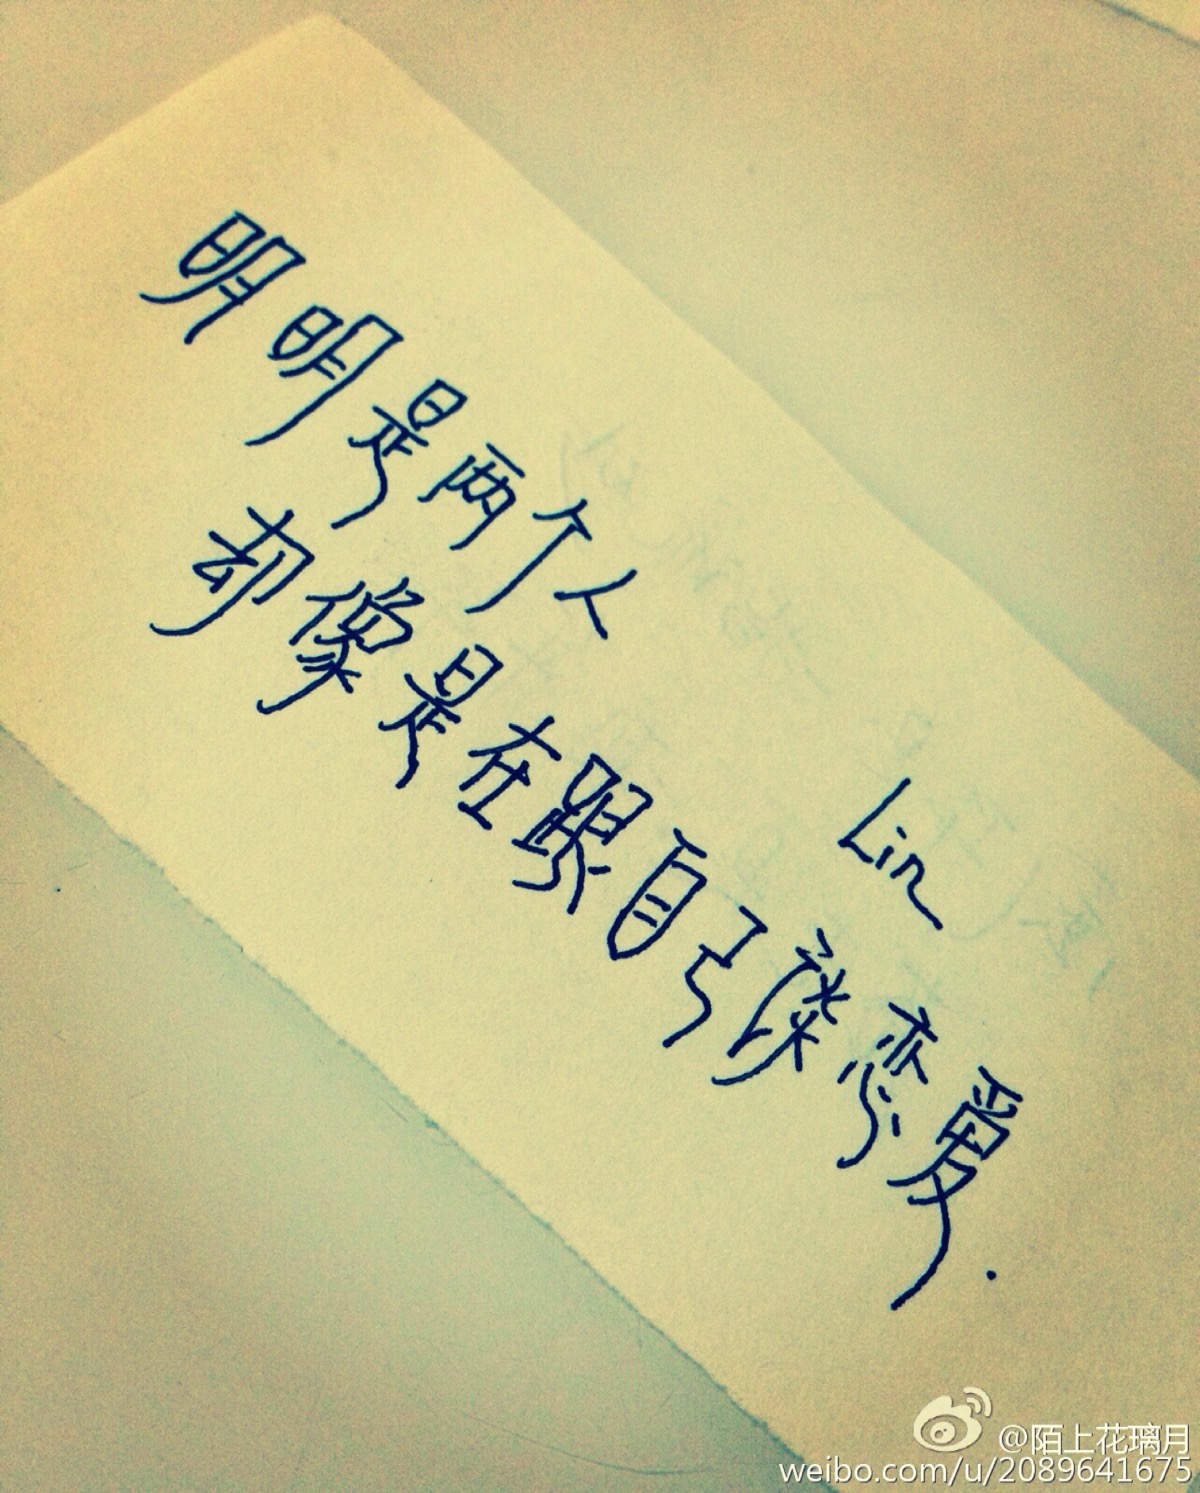 明明是两个人
却像是在跟自己谈恋爱.
Lin
@陌上花璃月
weibo.com/u/2089641675